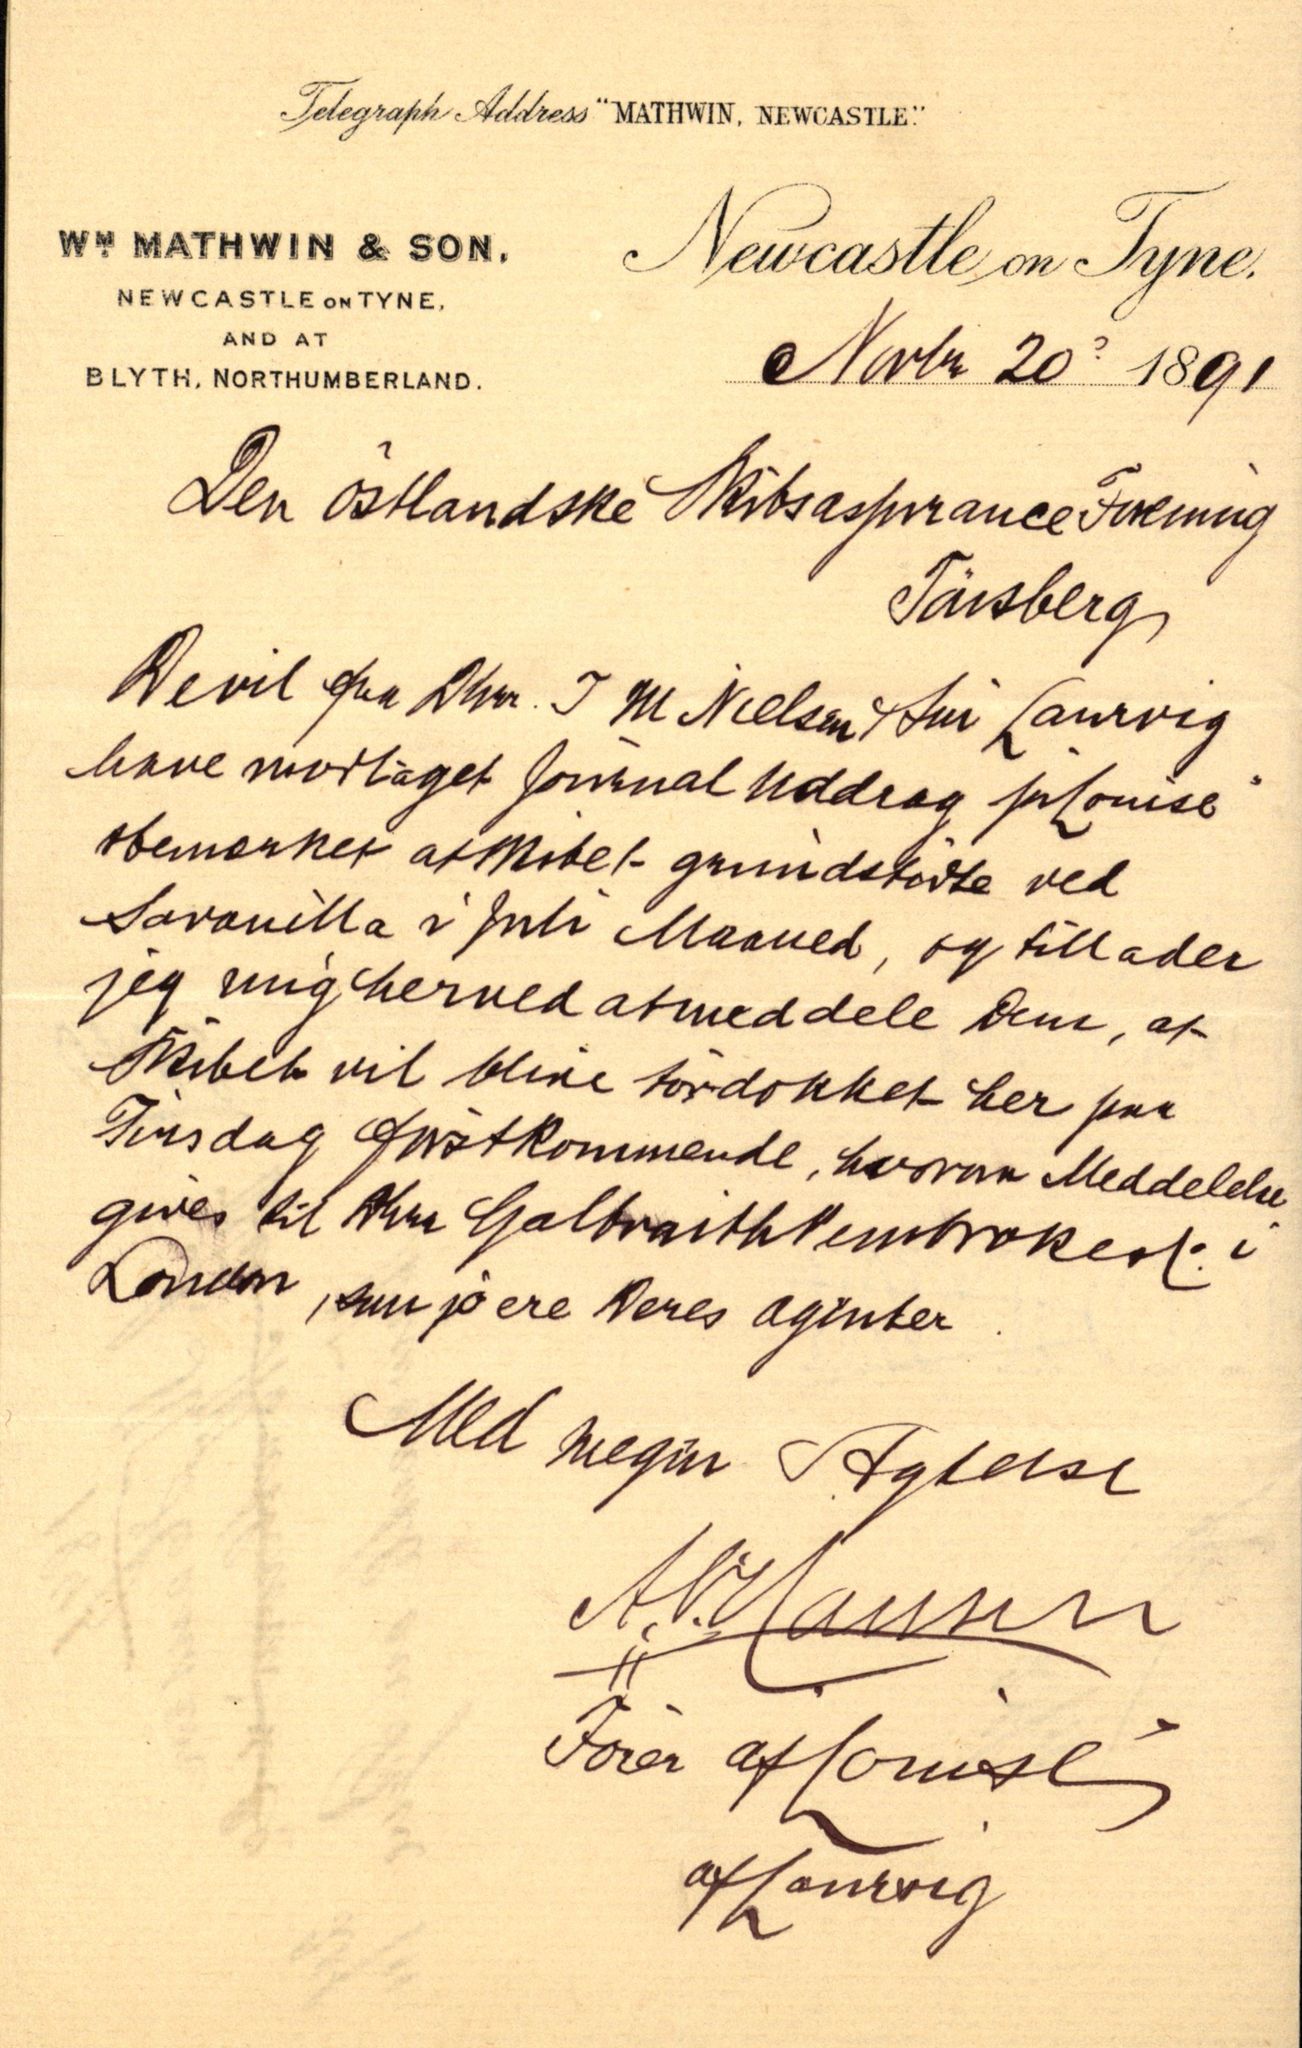 Telegraph Address "MATHWIN, NEWCASTLE."
Wm MATHWIN & SON,
NEWCASTLE ON TYNE,
AND AT
BLYTH, NORTHUMBERLAND.
Newcastle on Tyne.
Novbr 20 1891
Den östlandske Skibsassurance Forening
Tönsberg
De vil fra Dhrr. I M Nielsen & Sön Laurvig
have modtaget Journal Uddrag pr "Louise"
bemærket at Skibet grundstödte ved
Savanilla i Juli Maaned, og tillader
jeg mig herved at meddele Dem, at
Skibet vil blive tördokket her paa
Tirsdag förstkommende, hvorom Meddelelse
gives til Dhrr Galbraith Pembroke & Co. i
London, som jo ere Deres Agenter.
Med megen Agtelse
A. Hansen
Förer af "Louise"
af Laurvig